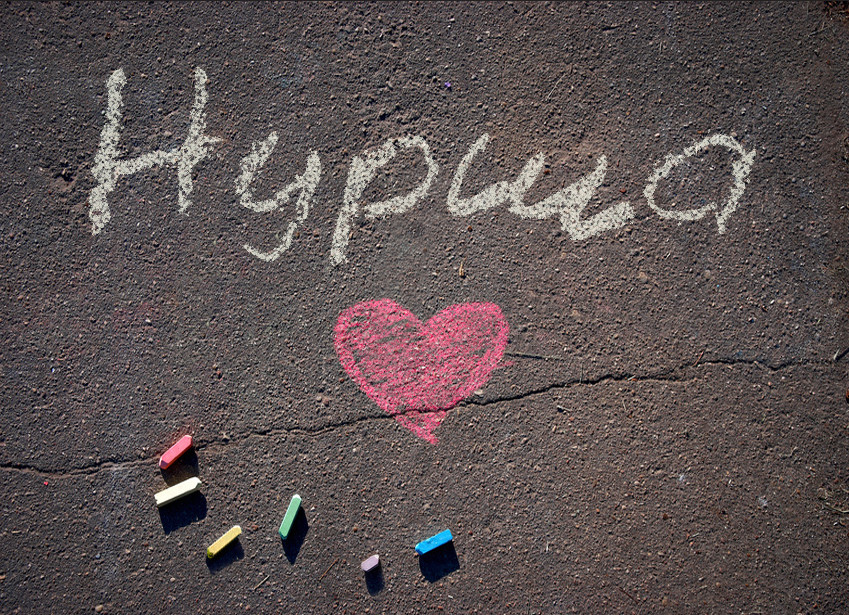 Нурша